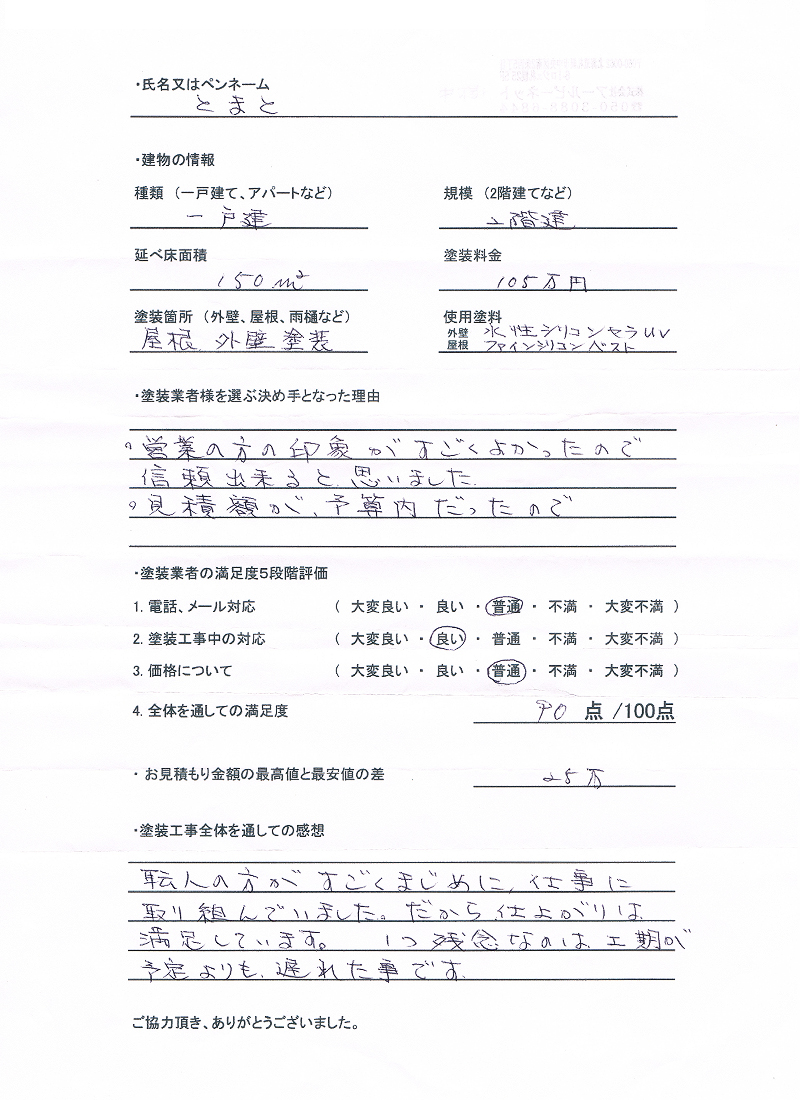 ・氏名又はペンネーム
とまと
・建物の情報
種類 (一戸建て、アパートなど)
規模 (2階建てなど)
一戸建
2階建
延べ床面積
塗装料金
150㎡
105万円
塗装箇所 (外壁、屋根、雨樋など)
使用塗料
屋根 外壁 塗装
外壁 水性シリコンセラUV
屋根 ファインシリコンベスト
・塗装業者様を選ぶ決め手となった理由
営業の方の印象がすごくよかったので
信頼出来ると思いました。
見積額が、予算内だったので
・塗装業者の満足度5段階評価
1. 電話、メール対応 ( 大変良い ・ 良い ・ 普通 ・ 不満 ・ 大変不満 )
2. 塗装工事中の対応 ( 大変良い ・ 良い ・ 普通 ・ 不満 ・ 大変不満 )
3. 価格について ( 大変良い ・ 良い ・ 普通 ・ 不満 ・ 大変不満 )
4. 全体を通しての満足度 90 点 /100点
・ お見積もり金額の最高値と最安値の差 25万
・塗装工事全体を通しての感想
転人の方がすごくまじめに、仕事に
取り組んでいました。だから仕上がりは
満足しています。 1つ残念なのは、工期が
予定よりも、遅れた事です。
ご協力頂き、ありがとうございました。